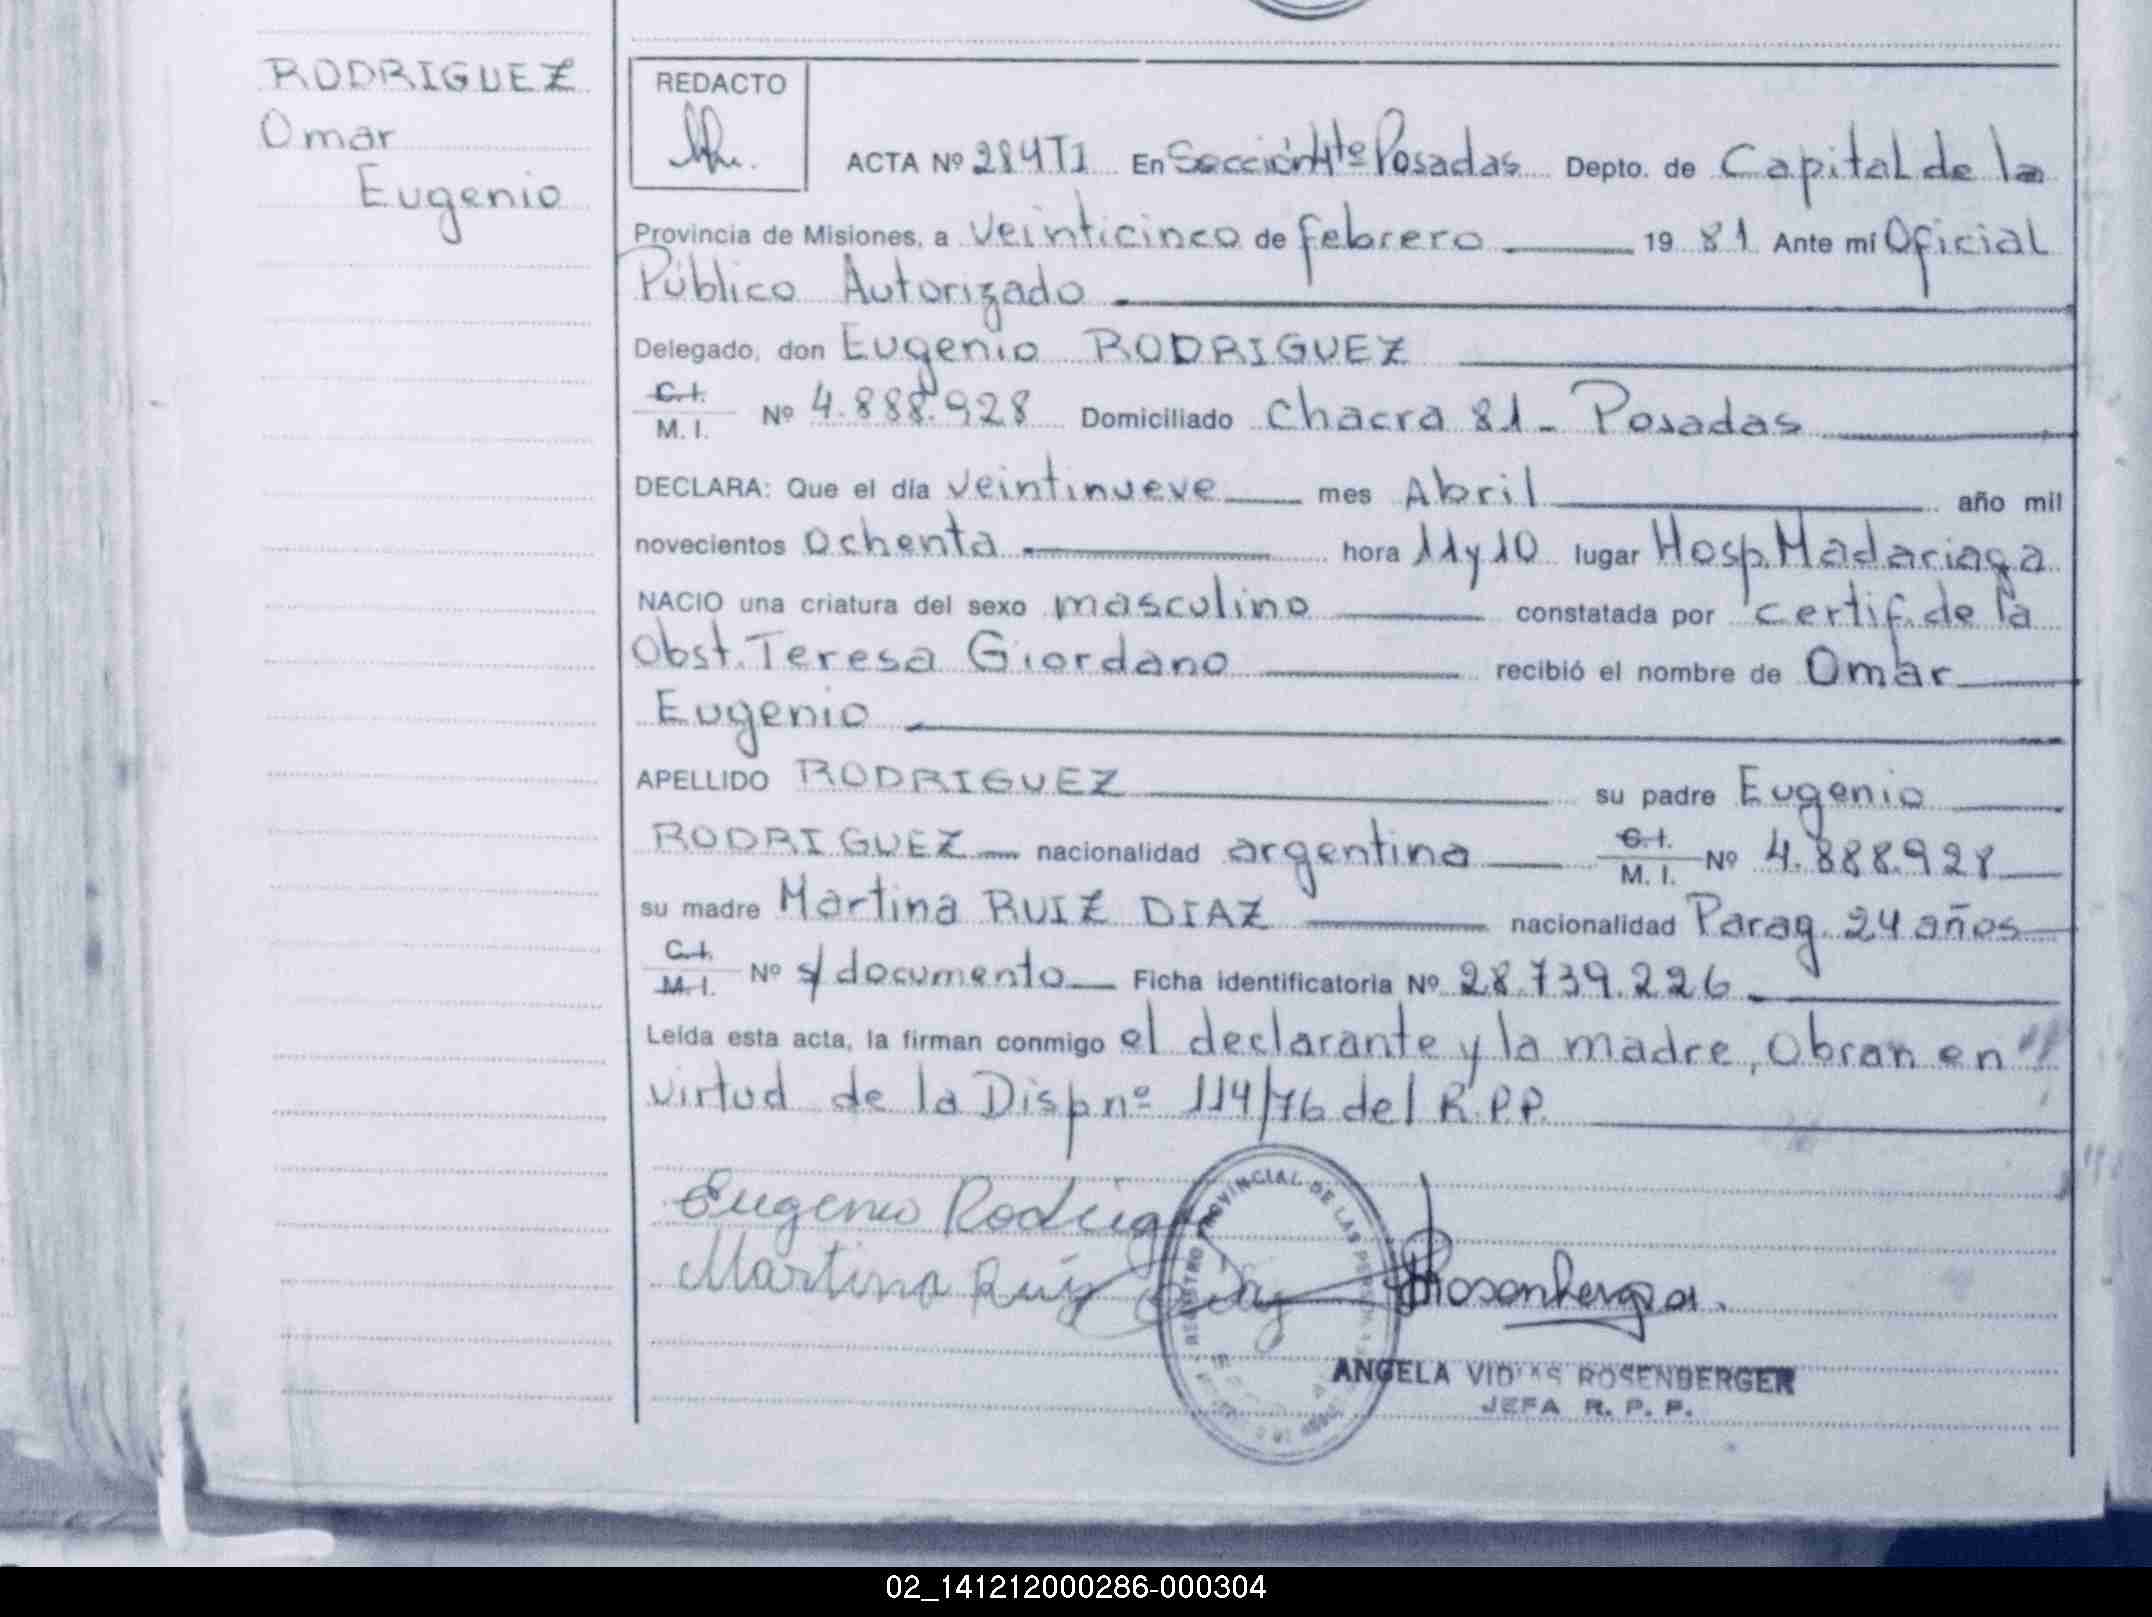 RODRIGUEZ
Omar
Eugenio
REDACTO
ACTA Nº 284T1 En Sección 4tª Posadas Depto. de Capital de la
Provincia de Misiones, a veinticinco de febrero 19 81 Ante mí Oficial
Público Autorizado
Delegado, don Eugenio RODRIGUEZ
C.I.
M. I. Nº 4.888.928 Domiciliado Chacra 81 - Posadas
DECLARA: Que el día veintinueve mes Abril año mil
novecientos ochenta hora 11 y 10 lugar Hosp. Madariaga
NACIO una criatura del sexo masculino constatada por certif. de la
Obst. Teresa Giordano recibió el nombre de Omar
Eugenio
APELLIDO RODRIGUEZ su padre Eugenio
RODRIGUEZ nacionalidad argentina C.I. M. I. Nº 4.888.928
su madre Martina RUIZ DIAZ nacionalidad Parag. 24 años
C.I.
M.I. Nº s/documento Ficha identificatoria Nº 28.739.226
Leída esta acta, la firman conmigo el declarante y la madre, obran en
virtud de la Disp nº 114/76 del R.P.P.
Eugenio Rodrig
Martina Ruiz
REGISTRO PROVINCIAL DE LAS
Rosenberger
ANGELA VIDAS ROSENBERGER
JEFA R. P. P.
02_141212000286-000304